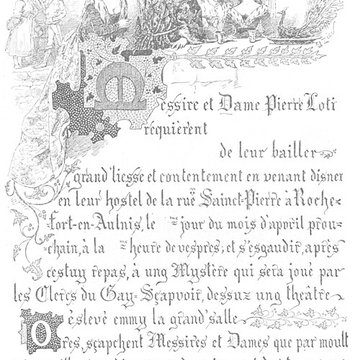 Messire et Dame Pierre Loti
réquièrent
de leur bailler
grand'liesse et contentement en venant disner
en leur hostel de la rue Sainct-Pierre à Roche-
fort-en-Aulnis, le jour du mois d'apvril prou-
chain, à la heure de vespres, et s'esgaudir, après
cestuy repas, à ung Mystère qui sera joué par
les Clercs du Gay-Sçapvoir, dessuz ung théâtre
eslevé emmy la grand'salle
Ores, sçapchent Messires et Dames que par moult